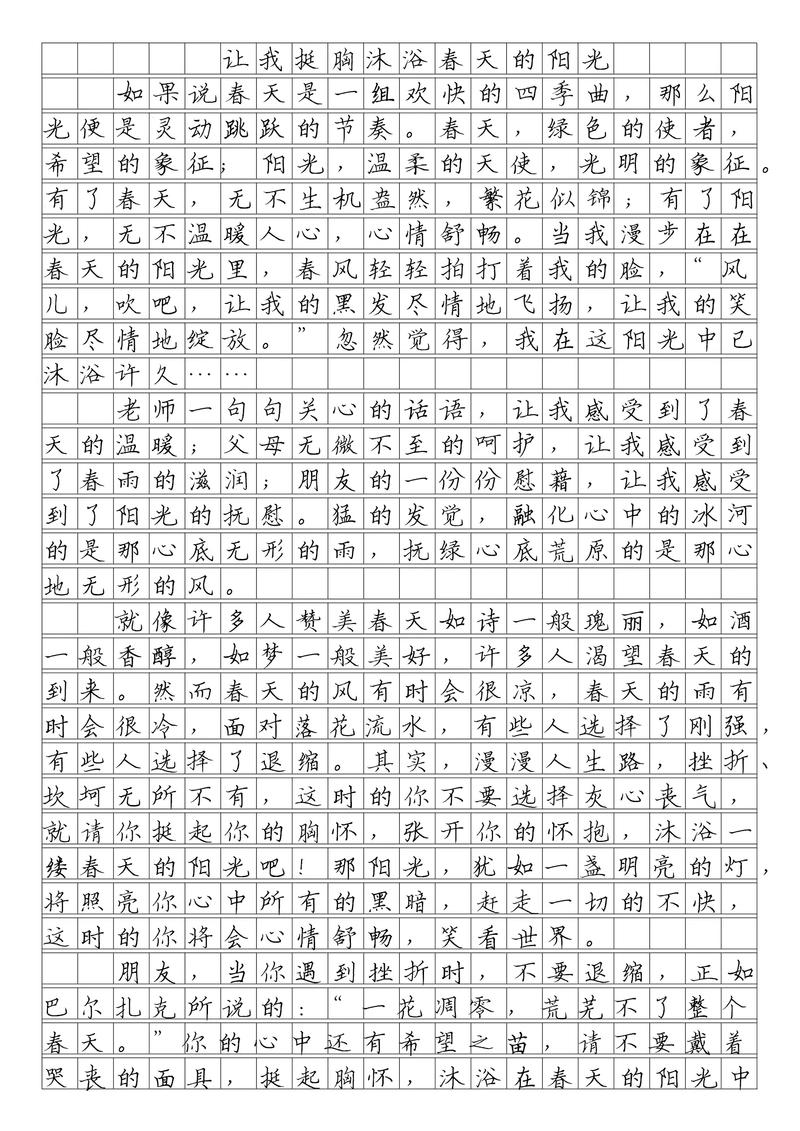 让我挺胸沐浴春天的阳光
如果说春天是一组欢快的四季曲，那么阳
光便是灵动跳跃的节奏。春天，绿色的使者，
希望的象征；阳光，温柔的天使，光明的象征。
有了春天，无不生机盎然，繁花似锦；有了阳
光，无不温暖人心，心情舒畅。当我漫步在在
春天的阳光里，春风轻轻拍打着我的脸，“风
儿，吹吧，让我的黑发尽情地飞扬，让我的笑
脸尽情地绽放。”忽然觉得，我在这阳光中已
沐浴许久……
老师一句句关心的话语，让我感受到了春
天的温暖；父母无微不至的呵护，让我感受到
了春雨的滋润；朋友的一份份慰藉，让我感受
到了阳光的抚慰。猛的发觉，融化心中的冰河
的是那心底无形的雨，抚绿心底荒原的是那心
地无形的风。
就像许多人赞美春天如诗一般瑰丽，如酒
一般香醇，如梦一般美好，许多人渴望春天的
到来。然而春天的风有时会很凉，春天的雨有
时会很冷，面对落花流水，有些人选择了刚强，
有些人选择了退缩。其实，漫漫人生路，挫折、
坎坷无所不有，这时的你不要选择灰心丧气，
就请你挺起你的胸怀，张开你的怀抱，沐浴一
缕春天的阳光吧！那阳光，犹如一盏明亮的灯，
将照亮你心中所有的黑暗，赶走一切的不快，
这时的你将会心情舒畅，笑看世界。
朋友，当你遇到挫折时，不要退缩，正如
巴尔扎克所说的：“一花凋零，荒芜不了整个
春天。”你的心中还有希望之苗，请不要戴着
哭丧的面具，挺起胸怀，沐浴在春天的阳光中